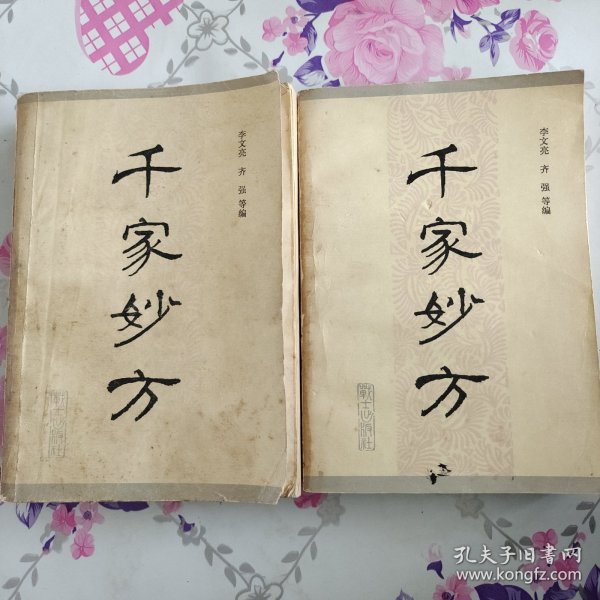 千家妙方
李文亮 齐强等编
战士出版社
千家妙方
李文亮 齐强等编
战士出版社
孔夫子旧书网
www.kongfz.com